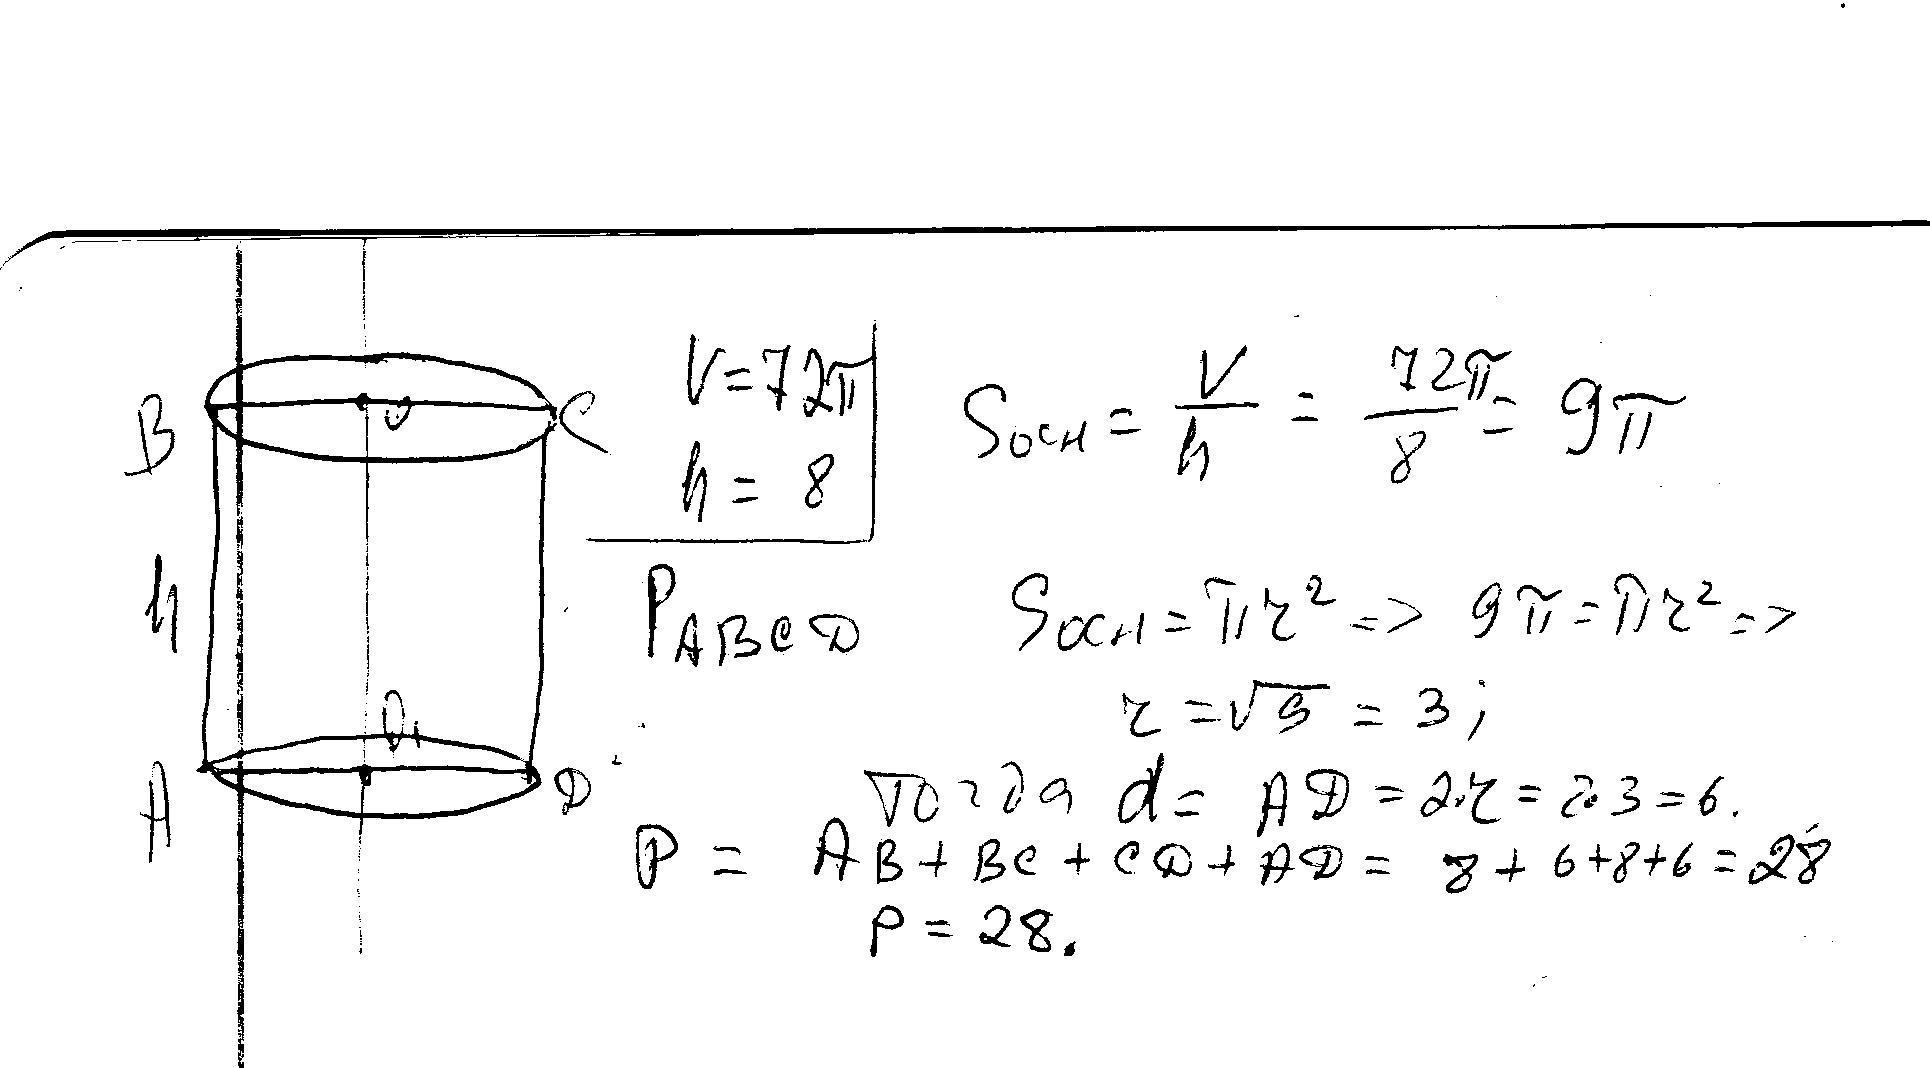 B
O
C
h
A
O₁
D
V = 72π
h = 8
P_ABCD
Sосн = V/h = 72π/8 = 9π
Sосн = πr² => 9π = πr² =>
r = √9 = 3;
тогда d = AD = 2·r = 2·3 = 6.
P = AB + BC + CD + AD = 8 + 6 + 8 + 6 = 28
P = 28.